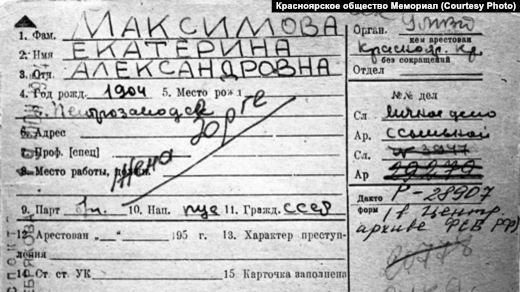 Красноярское общество Мемориал (Courtesy Photo)
1. Фам. МАКСИМОВА
2. Имя ЕКАТЕРИНА
3. Отч. АЛЕКСАНДРОВНА
4. Год рожд. 1904 5. Место рожд.
г. Петрозаводск
6. Адрес
7. Проф. [спец]
8. Место работы, должн.
Жена Зорге
9. Парт б/п. 10. Нац. рус 11. Гражд. СССР
12. Арестован „ “ 195 г. 13. Характер преступ-
ления
14 Ст. ст. УК 15 Карточка заполнена
Орган.
кем арестован
Краснояр. Кр.
без сокращений
Отдел
№№ дел
Сл личное дело
Ар. ссыльной
Сл.
Ар 29279
Дакто Р-28907
форм (в Центр.
архиве ФСБ РФ)